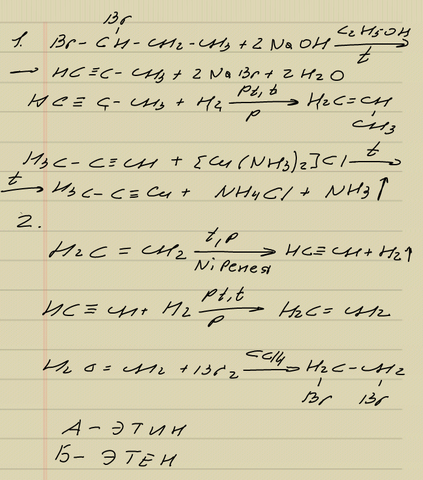 Br
1. Br-CH-CH2-CH3 + 2NaOH C2H5OH t →
→ HC≡C-CH3 + 2NaBr + 2H2O
HC≡C-CH3 + H2 Pt, t p → H2C=CH
CH3
H3C-C≡CH + [Cu(NH3)2]Cl t →
t → H3C-C≡Cu + NH4Cl + NH3↑
2.
H2C=CH2 t, p Ni Ренея → HC≡CH + H2↑
HC≡CH + H2 Pt, t p → H2C=CH2
H2C=CH2 + Br2 CCl4 → H2C-CH2
Br Br
А - ЭТИН
Б - ЭТЕН